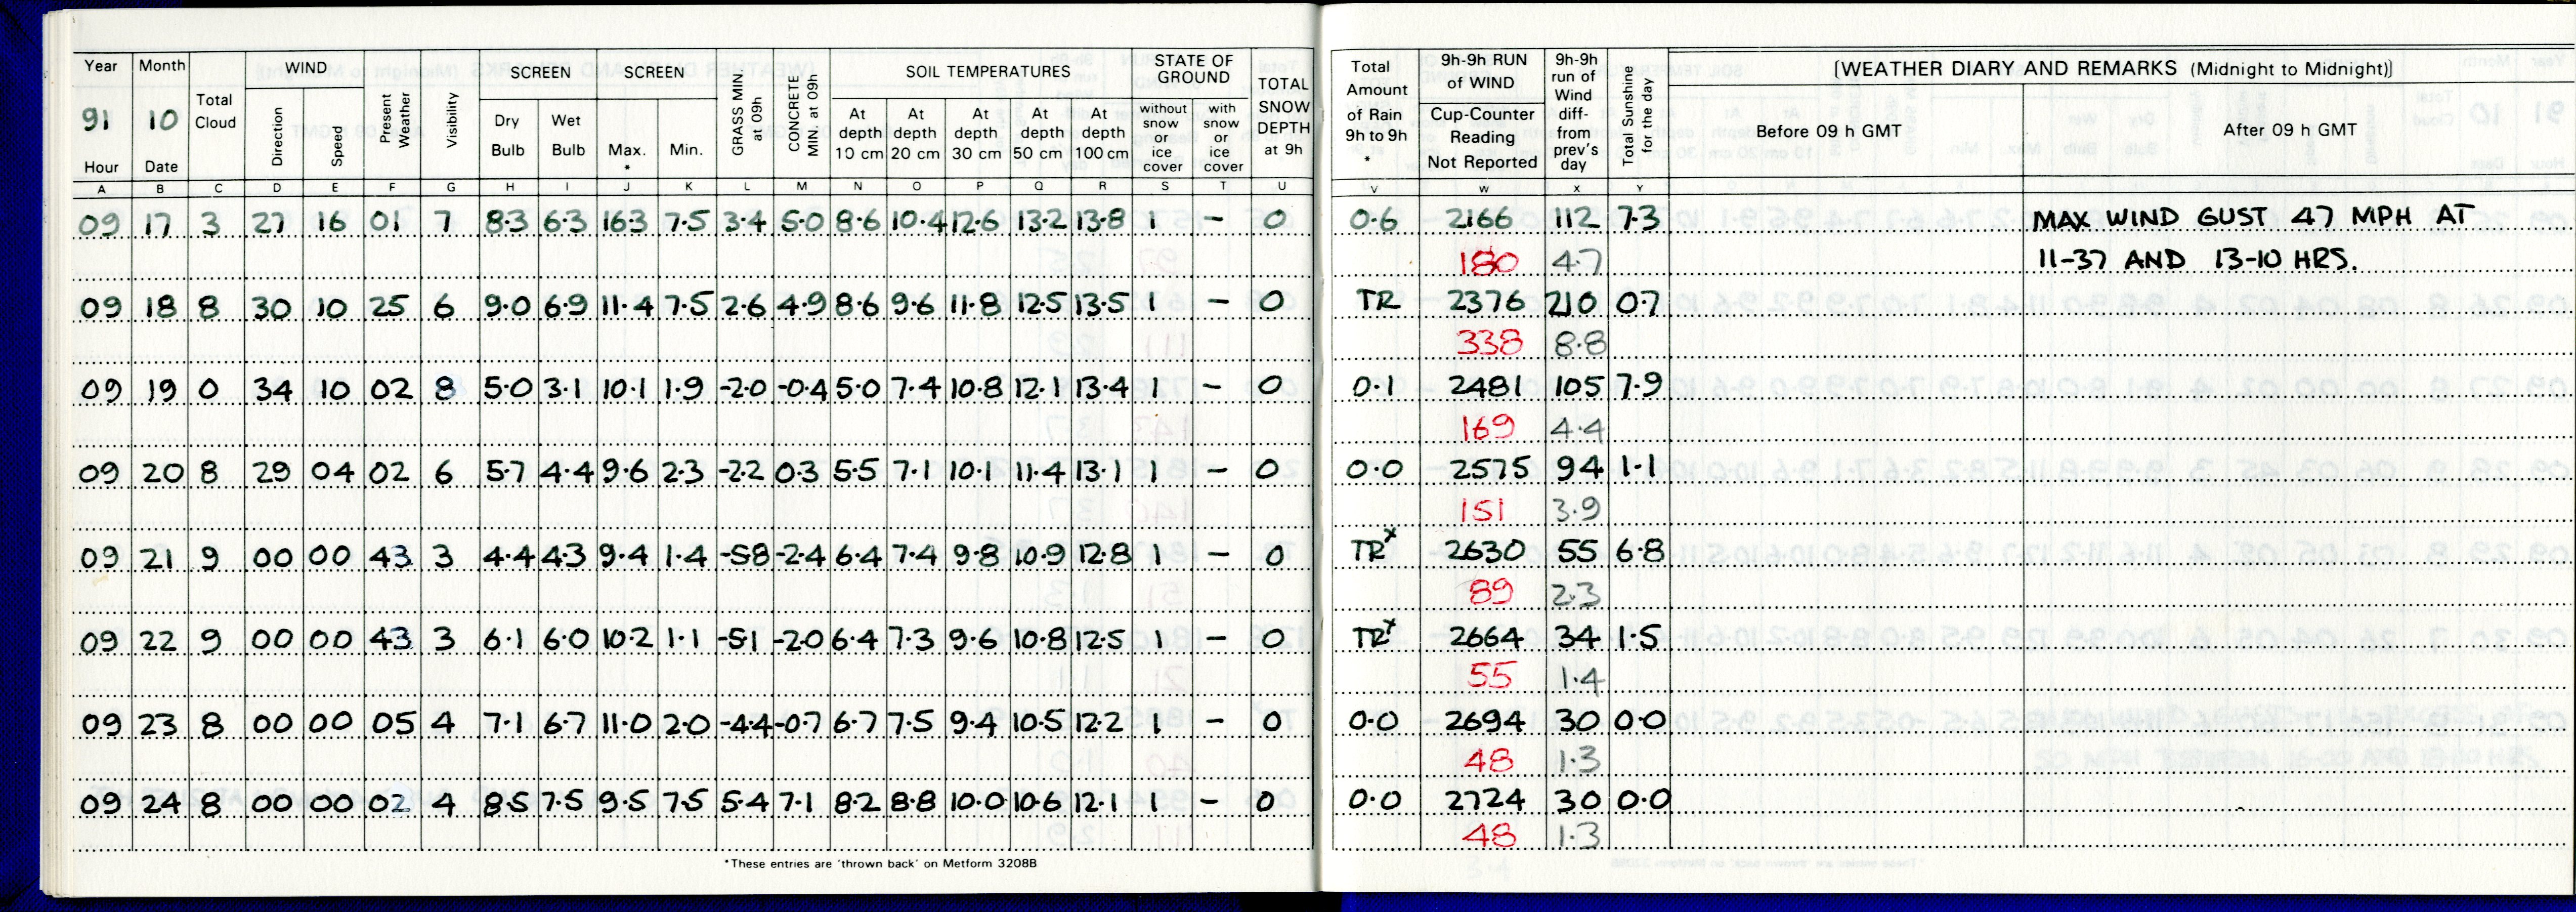 Year Month Total Cloud WIND Present Weather Visibility SCREEN SCREEN GRASS MIN. at 09h CONCRETE MIN. at 09h SOIL TEMPERATURES STATE OF GROUND TOTAL SNOW DEPTH at 9h Total Amount of Rain 9h to 9h * 9h-9h RUN of WIND 9h-9h run of Wind diff- from prev's day Total Sunshine for the day [WEATHER DIARY AND REMARKS (Midnight to Midnight)]
91 10 Direction Speed Dry Bulb Wet Bulb Max. * Min. At depth 10 cm At depth 20 cm At depth 30 cm At depth 50 cm At depth 100 cm without snow or ice cover with snow or ice cover Cup-Counter Reading Not Reported Before 09 h GMT After 09 h GMT
Hour Date
A B C D E F G H I J K L M N O P Q R S T U V W X Y
09 17 3 27 16 01 7 8.3 6.3 16.3 7.5 3.4 5.0 8.6 10.4 12.6 13.2 13.8 1 – 0 0.6 2166 112 7.3 MAX WIND GUST 47 MPH AT
180 4.7 11-37 AND 13-10 HRS.
09 18 8 30 10 25 6 9.0 6.9 11.4 7.5 2.6 4.9 8.6 9.6 11.8 12.5 13.5 1 – 0 TR 2376 210 0.7
338 8.8
09 19 0 34 10 02 8 5.0 3.1 10.1 1.9 -2.0 -0.4 5.0 7.4 10.8 12.1 13.4 1 – 0 0.1 2481 105 7.9
169 4.4
09 20 8 29 04 02 6 5.7 4.4 9.6 2.3 -2.2 0.3 5.5 7.1 10.1 11.4 13.1 1 – 0 0.0 2575 94 1.1
151 3.9
09 21 9 00 00 43 3 4.4 4.3 9.4 1.4 -5.8 -2.4 6.4 7.4 9.8 10.9 12.8 1 – 0 TRx 2630 55 6.8
89 2.3
09 22 9 00 00 43 3 6.1 6.0 10.2 1.1 -5.1 -2.0 6.4 7.3 9.6 10.8 12.5 1 – 0 TRx 2664 34 1.5
55 1.4
09 23 8 00 00 05 4 7.1 6.7 11.0 2.0 -4.4 -0.7 6.7 7.5 9.4 10.5 12.2 1 – 0 0.0 2694 30 0.0
48 1.3
09 24 8 00 00 02 4 8.5 7.5 9.5 7.5 5.4 7.1 8.2 8.8 10.0 10.6 12.1 1 – 0 0.0 2724 30 0.0
48 1.3
*These entries are 'thrown back' on Metform 3208B